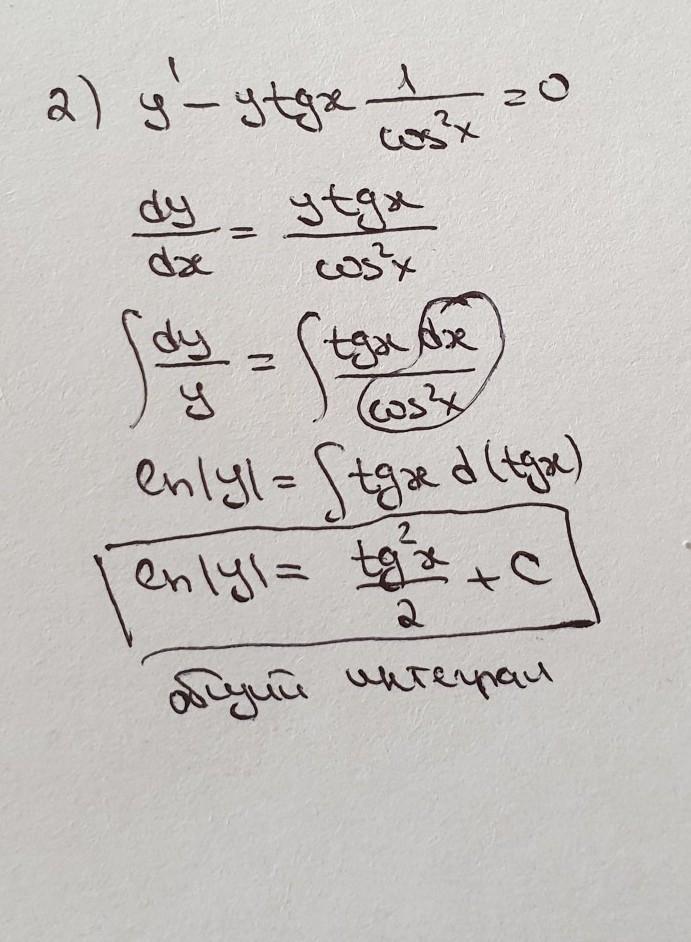 2) y' - y tgx 1/cos²x = 0
dy/dx = y tgx/cos²x
∫ dy/y = ∫ tgx dx/cos²x
ln|y| = ∫ tgx d(tgx)
ln|y| = tg²x/2 + C
общий интеграл